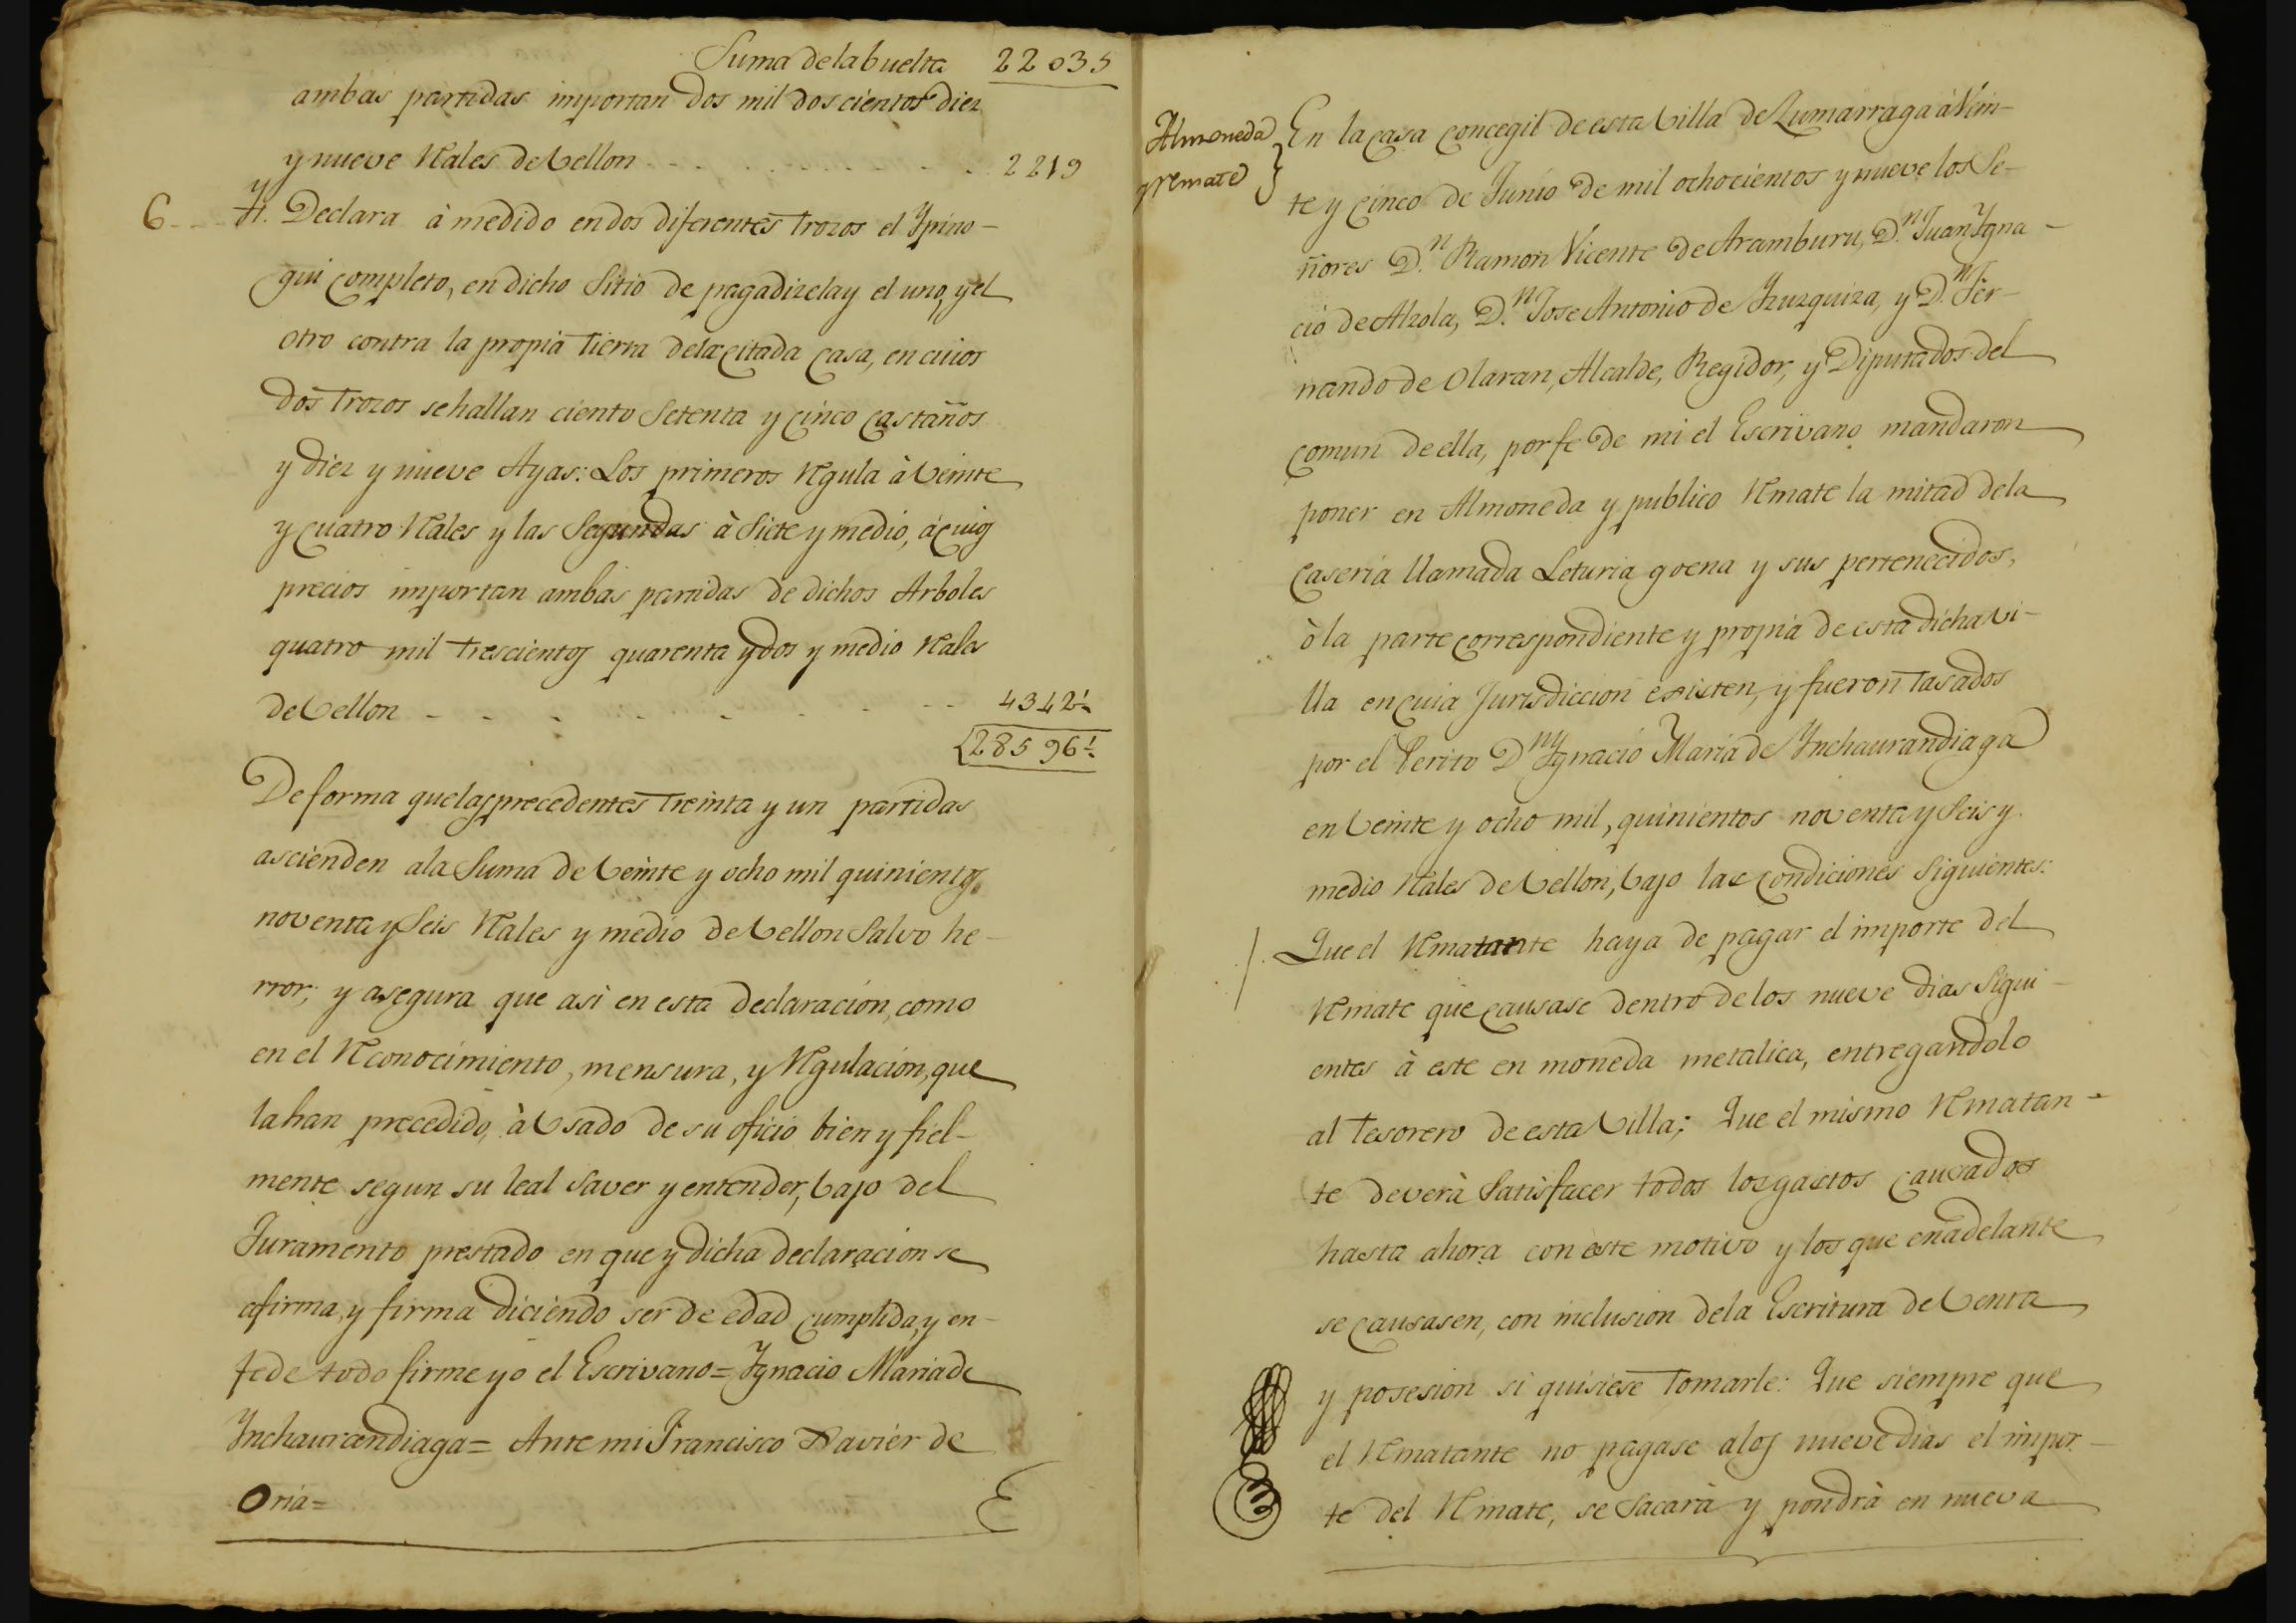 Suma dela buelta 22035
ambas partidas importan dos mil doscientos diez
y nueve Rales de Vellon 2219
6 Yt. Declara à medido en dos diferentes trozos el Ypino-
gui completo, en dicho Sitio de pagadizelay el uno, y el
otro contra la propia tierra dela citada Casa, en cuios
dos trozos se hallan ciento setenta y cinco castaños
y diez y nueve Ayas: Los primeros Regula à Veinte
y cuatro Rales y las Segundas à Siete y medio, à cuios
precios importan ambas partidas de dichos Arboles
quatro mil trescientos quarenta y dos y medio Rales
de Vellon 4342½
28596½
De forma que las precedentes treinta y un partidas
ascienden ala Suma de Veinte y ocho mil quinientos
noventa y Seis Rales y medio de Vellon Salvo he-
rror; y asegura que asi en esta declaracion, como
en el Reconocimiento, mensura, y Regulacion, que
la han precedido, à Vsado de su oficio bien y fiel-
mente segun su leal saver y entender, vajo del
Juramento prestado en que y dicha declaracion se
afirma, y firma diciendo ser de edad cumplida, y en-
fe de todo firme yo el Escrivano = Ygnacio Maria de
Ynchaurandiaga = Ante mi Francisco Xavier de
Oria =
Almoneda
y remate
En la Casa Concegil de esta Villa de Zumarraga à Vein-
te y cinco de Junio de mil ochocientos y nueve los Se-
ñores D.n Ramon Vicente de Aramburu, D.n Juan Ygna-
cio de Alzola, D.n Jose Antonio de Yzuzquiza, y D.n Fer-
nando de Olaran, Alcalde, Regidor, y Diputados del
comun de ella, por fe de mi el Escrivano mandaron
poner en Almoneda y publico Remate la mitad dela
Caseria llamada Leturia goena y sus pertenecidos,
ò la parte correspondiente y propia de esta dicha Vi-
lla en cuia Jurisdiccion existen, y fueron tasados
por el Perito D.n Ygnacio Maria de Ynchaurandiaga
en Veinte y ocho mil, quinientos noventa y Seis y
medio Rales de Vellon, vajo las condiciones Siguientes:
1. Que el Rematante haya de pagar el importe del
Remate que causase dentro de los nueve dias Sigui-
entes à este en moneda metalica, entregandolo
al Tesorero de esta Villa; Que el mismo Rematan-
te deverà Satisfacer todos los gastos causados
hasta ahora con este motivo y los que en adelante
se causasen, con inclusion dela Escritura de Venta
y posesion si quisiese tomarle: Que siempre que
el Rematante no pagase alos nueve dias el impor-
te del Remate, se Sacarà y pondrà en nueva